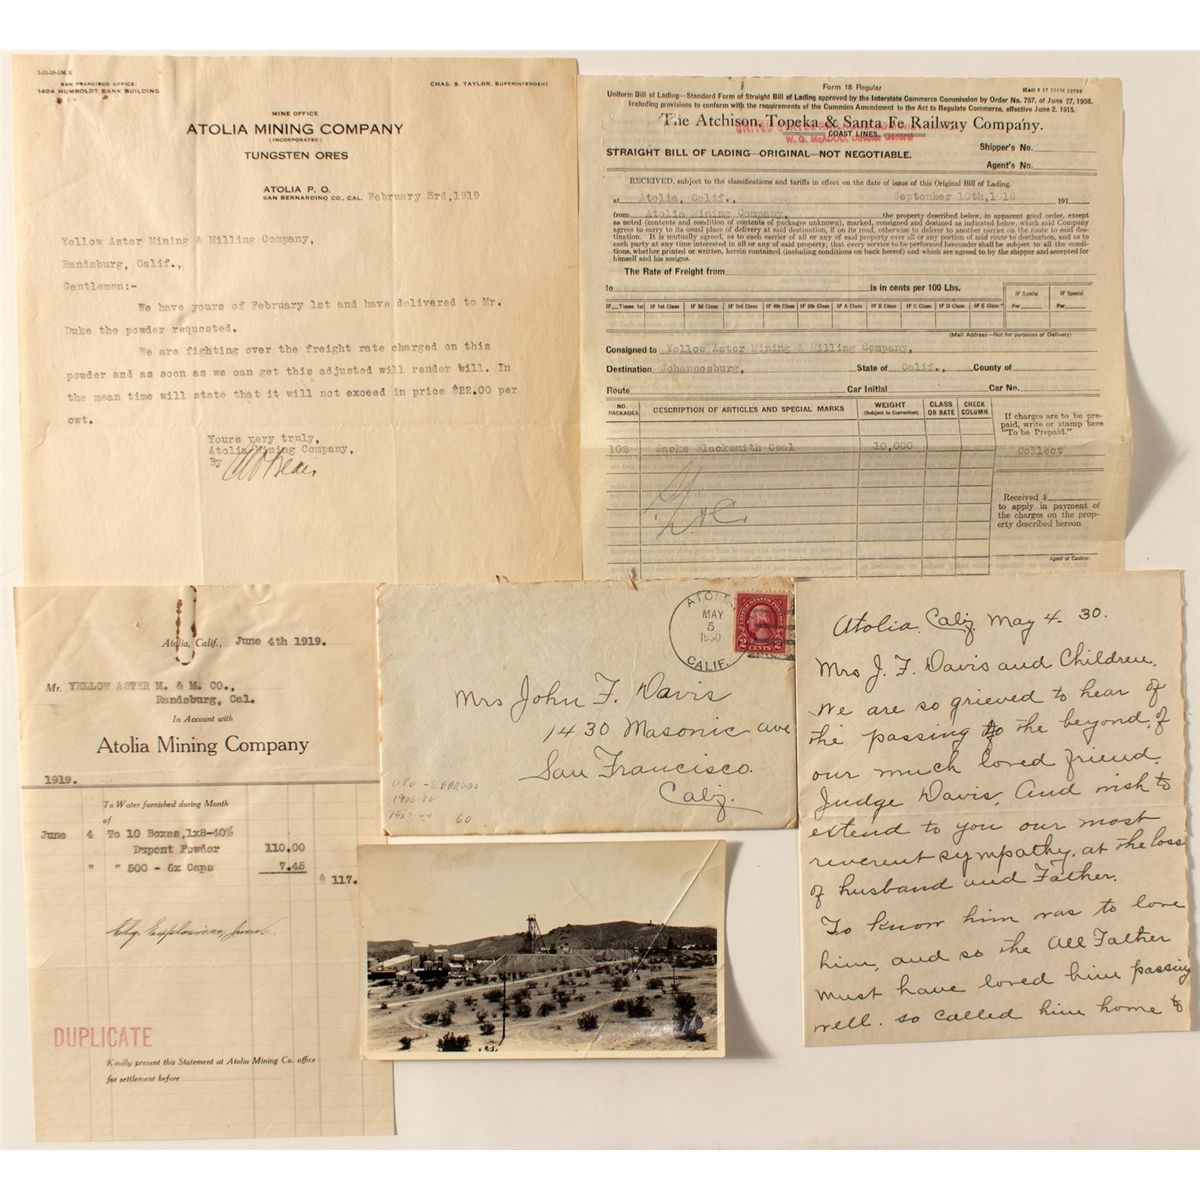 SAN FRANCISCO OFFICE:
1404 HUMBOLDT BANK BUILDING
CHAS. S. TAYLOR, SUPERINTENDENT
MINE OFFICE
ATOLIA MINING COMPANY
(INCORPORATED)
TUNGSTEN ORES
ATOLIA P. O.
SAN BERNARDINO CO., CAL. February 3rd, 1919
Yellow Aster Mining & Milling Company,
Randsburg, Calif.,
Gentlemen:-
We have yours of February 1st and have delivered to Mr.
Duke the powder requested.
We are fighting over the freight rate charged on this
powder and as soon as we can get this adjusted will render bill. In
the mean time will state that it will not exceed in price $22.00 per
cwt.
Yours very truly,
Atolia Mining Company,
By
Form 18 Regular
Uniform Bill of Lading—Standard Form of Straight Bill of Lading approved by the Interstate Commerce Commission by Order No. 787, of June 27, 1908.
Including provisions to conform with the requirements of the Cummins Amendment to the Act to Regulate Commerce, effective June 2, 1915.
The Atchison, Topeka & Santa Fe Railway Company.
COAST LINES.
UNITED STATES
W. G. McADOO, Director General
STRAIGHT BILL OF LADING—ORIGINAL—NOT NEGOTIABLE.
Shipper's No.
Agent's No.
RECEIVED, subject to the classifications and tariffs in effect on the date of issue of this Original Bill of Lading.
at Atolia, Calif., September 10th, 1918 191
from Atolia Mining Company, the property described below, in apparent good order, except
as noted (contents and condition of contents of packages unknown), marked, consigned and destined as indicated below, which said Company
agrees to carry to its usual place of delivery at said destination, if on its road, otherwise to deliver to another carrier on the route to said des-
tination. It is mutually agreed, as to each carrier of all or any of said property over all or any portion of said route to destination, and as to
each party at any time interested in all or any of said property, that every service to be performed hereunder shall be subject to all the condi-
tions, whether printed or written, herein contained (including conditions on back hereof) and which are agreed to by the shipper and accepted for
himself and his assigns.
The Rate of Freight from
to is in cents per 100 Lbs.
IF Times 1st IF 1st Class IF 2d Class IF 3rd Class IF 4th Class IF 5th Class IF A Class IF B Class IF C Class IF D Class IF E Class IF Special Per IF Special Per
(Mail Address—Not for purposes of Delivery)
Consigned to Yellow Aster Mining & Milling Company,
Destination Johannesburg, State of Calif., County of
Route Car Initial Car No.
NO. PACKAGES DESCRIPTION OF ARTICLES AND SPECIAL MARKS WEIGHT (Subject to Correction) CLASS OR RATE CHECK COLUMN
If charges are to be pre-
paid, write or stamp here
"To be Prepaid."
102 Sacks Blacksmith Coal 10,000 Collect
Received $
to apply in payment of
the charges on the prop-
erty described hereon
Agent or Cashier.
Atolia, Calif., June 4th 1919.
Mr. YELLOW ASTER M. & M. CO.,
Randsburg, Cal.
In Account with
Atolia Mining Company
1919.
To Water furnished during Month
of
June 4 To 10 Boxes, 1x8-40%
Dupont Powder 110.00
" " 500 - 6x Caps 7.45
$ 117.
Chg. Explosives,
DUPLICATE
Kindly present this Statement at Atolia Mining Co. office
for settlement before
ATOLIA
MAY
5
1930
CALIF.
UNITED STATES POSTAGE
2 CENTS 2
Mrs John F. Davis
1430 Masonic ave
San Francisco.
Calif.
1906-22
60
Atolia, Calif May 4. 30.
Mrs J. F. Davis and Children.
We are so grieved to hear of
the passing to the beyond, of
our much loved friend,
Judge Davis. And wish to
extend to you our most
reverent sympathy, at the loss
of husband and Father.
To know him was to love
him, and so the All Father
must have loved him passing
well. so called him home to